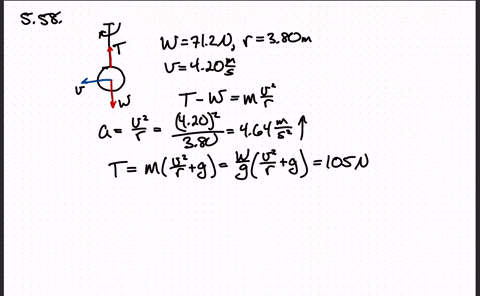 5.58.
R
T
W = 71.2N, r = 3.80m
v = 4.20 m/s
v
W
T - W = m v²/r
a = v²/r = (4.20)²/3.80 = 4.64 m/s² ↑
T = m(v²/r + g) = W/g (v²/r + g) = 105N